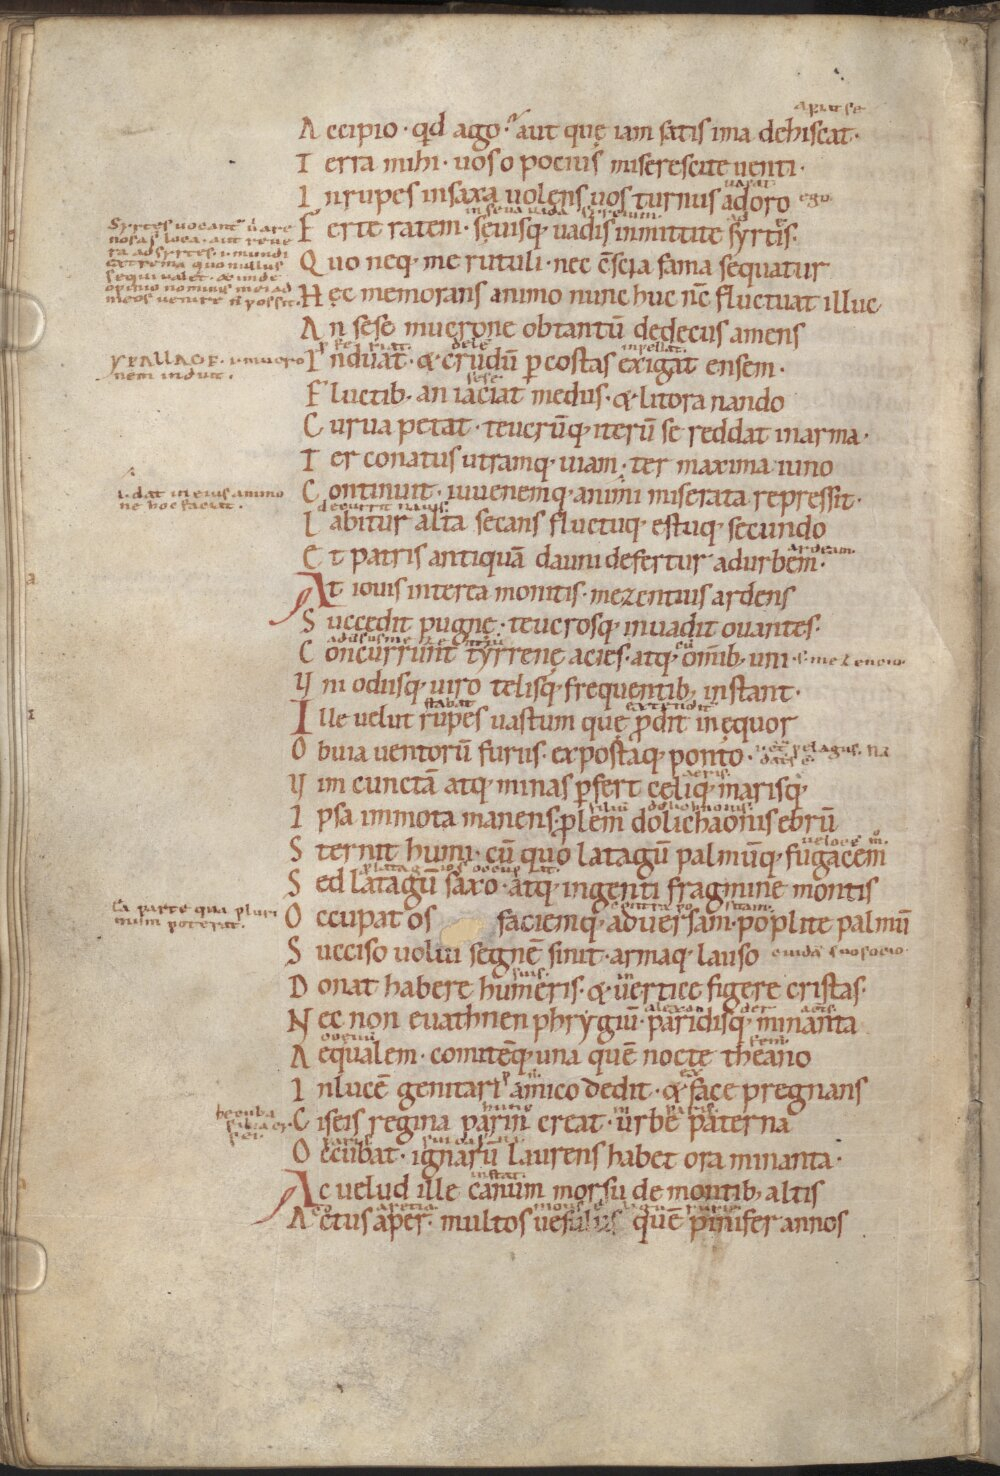 apiat se
A ccipio · qd ago · aut quę iam satis ima dehiscat ·
T erra mihi · uos o pocius miserescite uenti ·
I n rupes in saxa uolens uos turnus adoro ego
F erte ratem · sęuisq· uadis inmittite syrtis ·
Syrtes uocant
nosas loca · aut reue
ra ad syrtes · i· mundi
extrema quo nullus
sequi ualet · & unde
opinio nominis mei ad
meos uenire n possit ·
Q uo neq· me rutuli · nec c̄scia fama sequatur
H ęc memorans animo nunc huc nc̄ fluctuat illuc
A n sese mucrone obtantū dedecus amens
YPALLAGE · i· mucro
nem induit ·
I nduat · & crudū p costas exigat ensem ·
sese
F luctib; an iaciat medus · & litora nando
C urua petat · teucrūq· iterū se reddat in arma ·
T er conatus utramq· uiam · ter maxima iuno
i· dat in eius animo
ne hoc faciat ·
C ontinuit · iuuenemq· animi miserata repressit ·
decurrit nauis
L abitur alta secans fluctuq· estuq· secundo
ardeam
E t patris antiquā dauni defertur ad urbem ·
At iouis interea monitis · mezentius ardens
S uccedit pugnę · teucrosq· inuadit ouantes ·
C oncurrunt tyrrenę acies · atq· om̄ib; uni · s· mezencio
V ni odiisq· uiro telisq· frequentib; instant ·
stabat extendit
I lle uelut rupes uastum quę p̄dit in ęquor
O buia uentorū furiis · expostaq· ponto ·
V im cunctā atq· minas p̄fert celiq· marisq·
I psa immota manens · p̄lem dolichaonis ebrū
S ternit humi · cū quo latagū palmūq· fugacem
S ed latagū saxo · atq· ingenti fragmine montis
Ea parte qua pluri
mum poterat ·
O ccupat os faciemq· aduersam · poplite palmū
S ucciso uolui segnē sinit · armaq· lauso cuidā suo socio
suis in
D onat habere humeris · & uertice figere cristas ·
N ec non euathnen phrygiū · paridisq· minanta
A equalem · comitēq· una quē nocte theano
I n lucē genitari amico dedit · & face pregnans
hecuba
filia ci
sei
C iseis regina parin creat · urbe paterna
O ccubat · ignarū laurens habet ora minanta ·
Ac uelud ille canum morsu de montib; altis
A ctus aper · multos uesulus quē pinifer annos